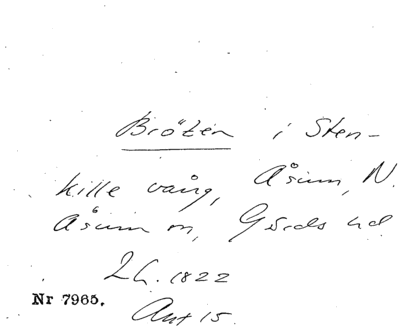 Bröten i Sten-
kille vång, Åsum, N.
Åsum sn, Gärds hd
Lh. 1822
Nr 7965.
Akt 15.